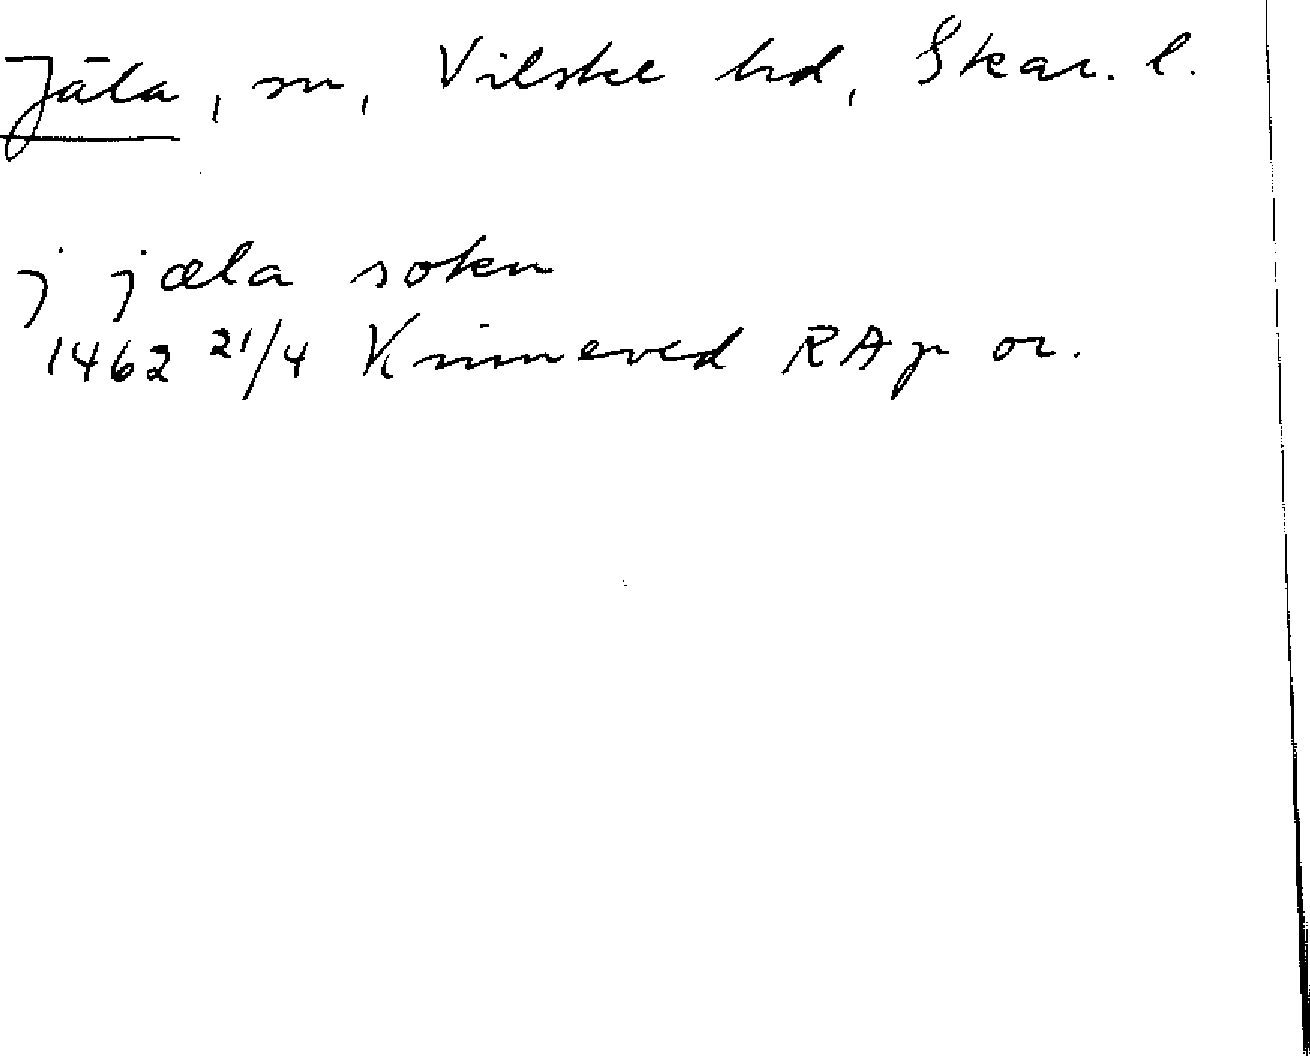 Jäla, sn, Vilske hd, Skar. l.
j jæla sokn
1462 21/4 Kinneved RAp or.